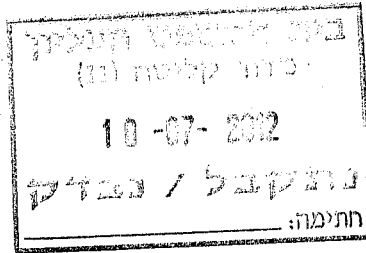 בית המשפט העליון
מדור קליטה (נג)
10-07-2012
נתקבל / נבדק
חתימה: